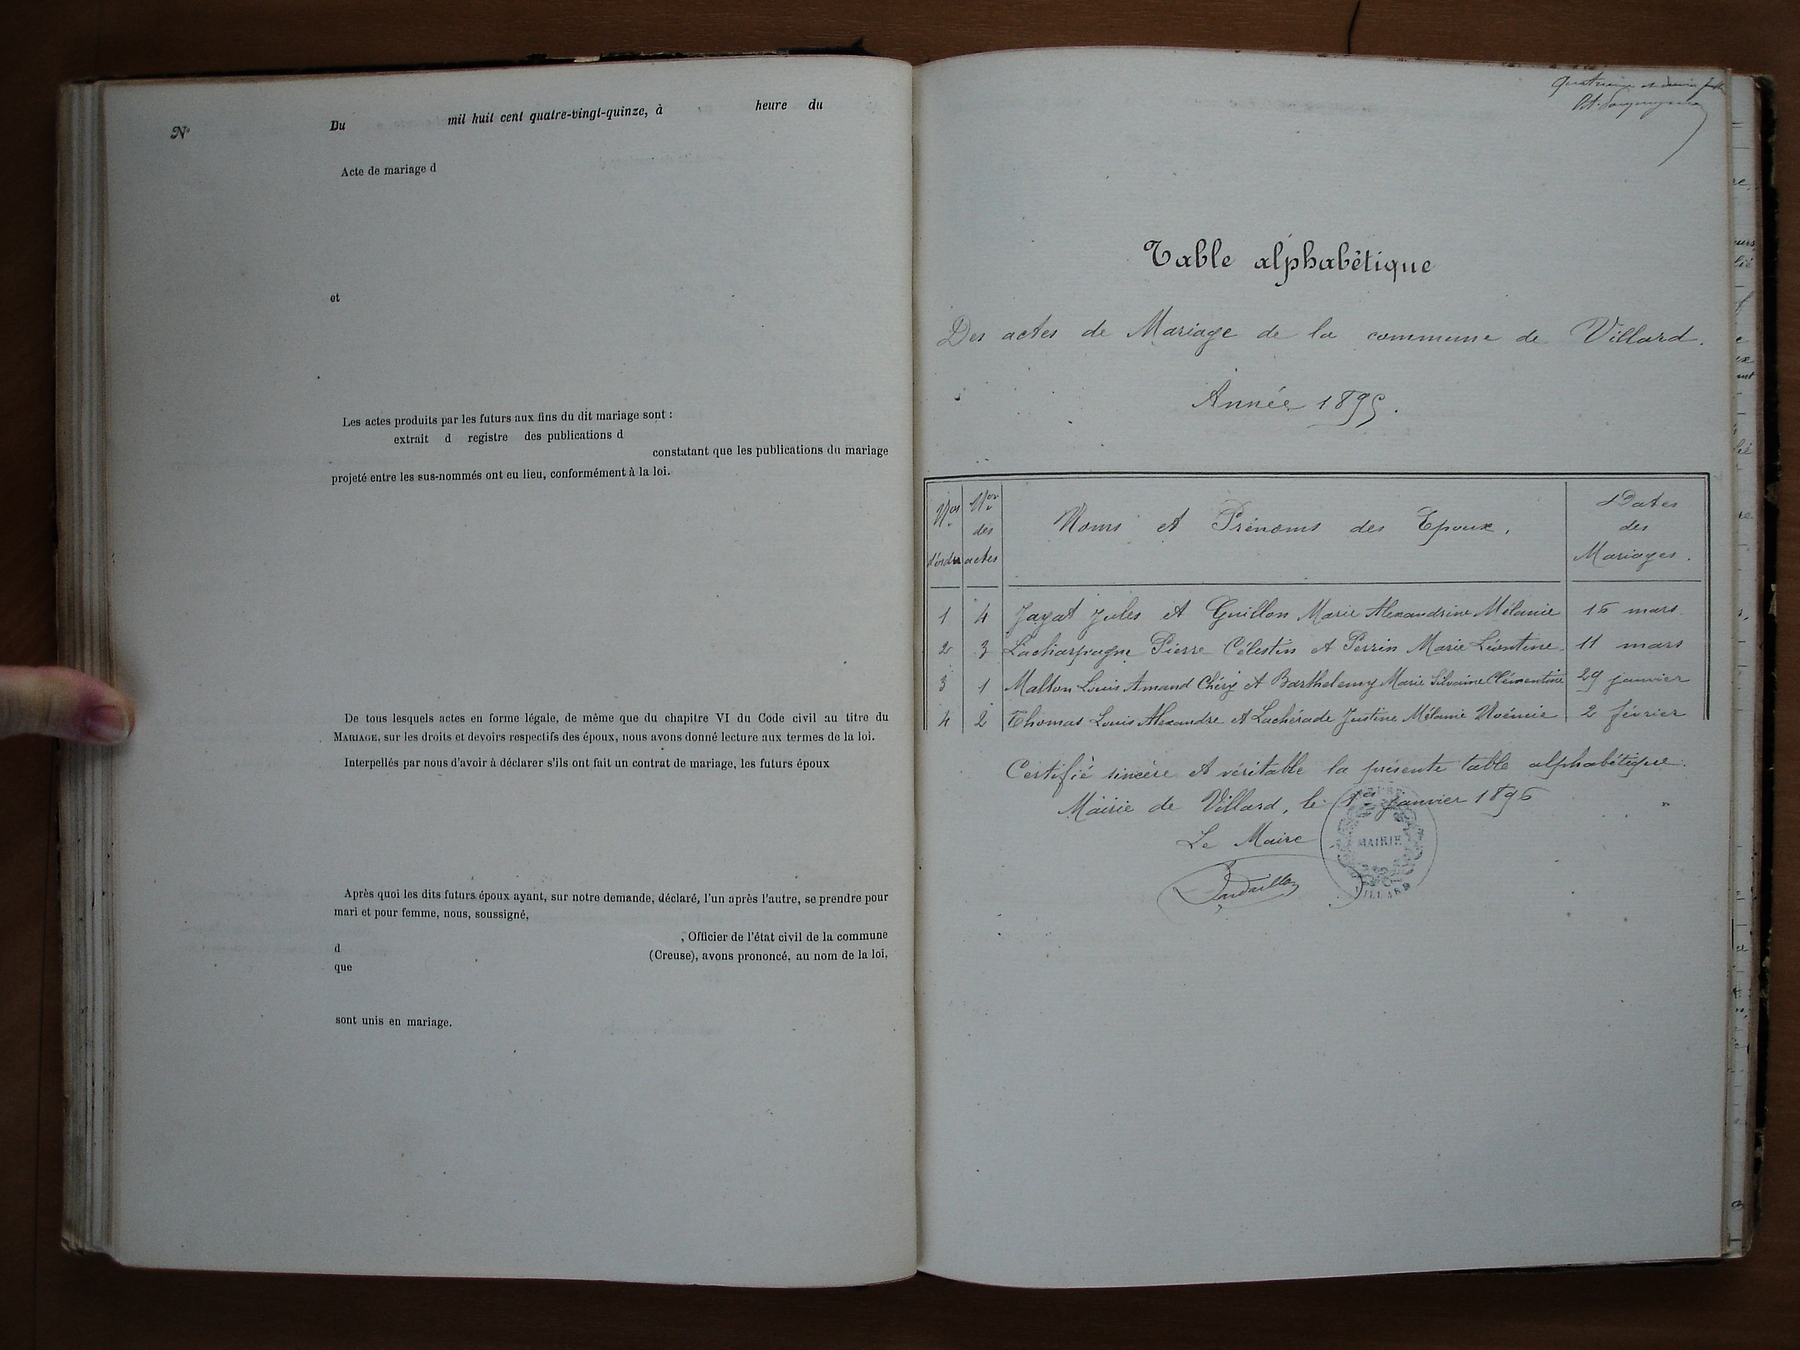 N°
Du mil huit cent quatre-vingt-quinze, à heure du
Acte de mariage d
et
Les actes produits par les futurs aux fins du dit mariage sont :
extrait d registre des publications d
constatant que les publications du mariage
projeté entre les sus-nommés ont eu lieu, conformément à la loi.
De tous lesquels actes en forme légale, de même que du chapitre VI du Code civil au titre du
MARIAGE, sur les droits et devoirs respectifs des époux, nous avons donné lecture aux termes de la loi.
Interpellés par nous d'avoir à déclarer s'ils ont fait un contrat de mariage, les futurs époux
Après quoi les dits futurs époux ayant, sur notre demande, déclaré, l'un après l'autre, se prendre pour
mari et pour femme, nous, soussigné,
, Officier de l'état civil de la commune
d (Creuse), avons prononcé, au nom de la loi,
que
sont unis en mariage.
Table alphabétique
Des actes de Mariage de la commune de Villard.
Année 1895.
Nos d'ordre Nos des actes Noms et Prénoms des Epoux. Dates des Mariages.
1 4 Jayat Jules et Guillon Marie Alexandrine Mélanie 16 mars
2 3 Lacharpagne Pierre Célestin et Perrin Marie Léontine 11 mars
3 1 Malton Louis Amand Chéry et Barthelemy Marie Silvaine Clémentine 29 janvier
4 2 Thomas Louis Alexandre et Lachérade Justine Mélanie Noémie 2 février
Certifié sincère et véritable la présente table alphabétique.
Mairie de Villard, le 1er janvier 1896
Le Maire
MAIRIE
VILLARD